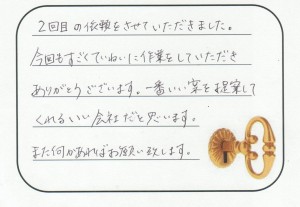 2回目の依頼をさせていただきました。
今回もすごくていねいに作業をしていただき
ありがとうございます。一番いい案を提案して
くれるいい会社だと思います。
また何かあればお願い致します。